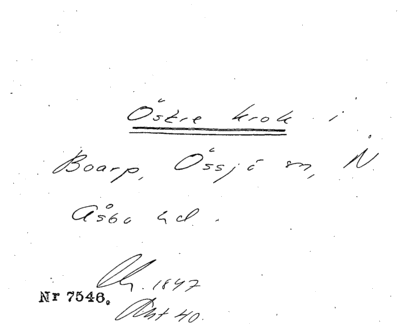 Östre krok i
Boarp, Össjö sn, N.
Åsbo hd.
Ch. 1847
Nr 7546.
Akt 40.